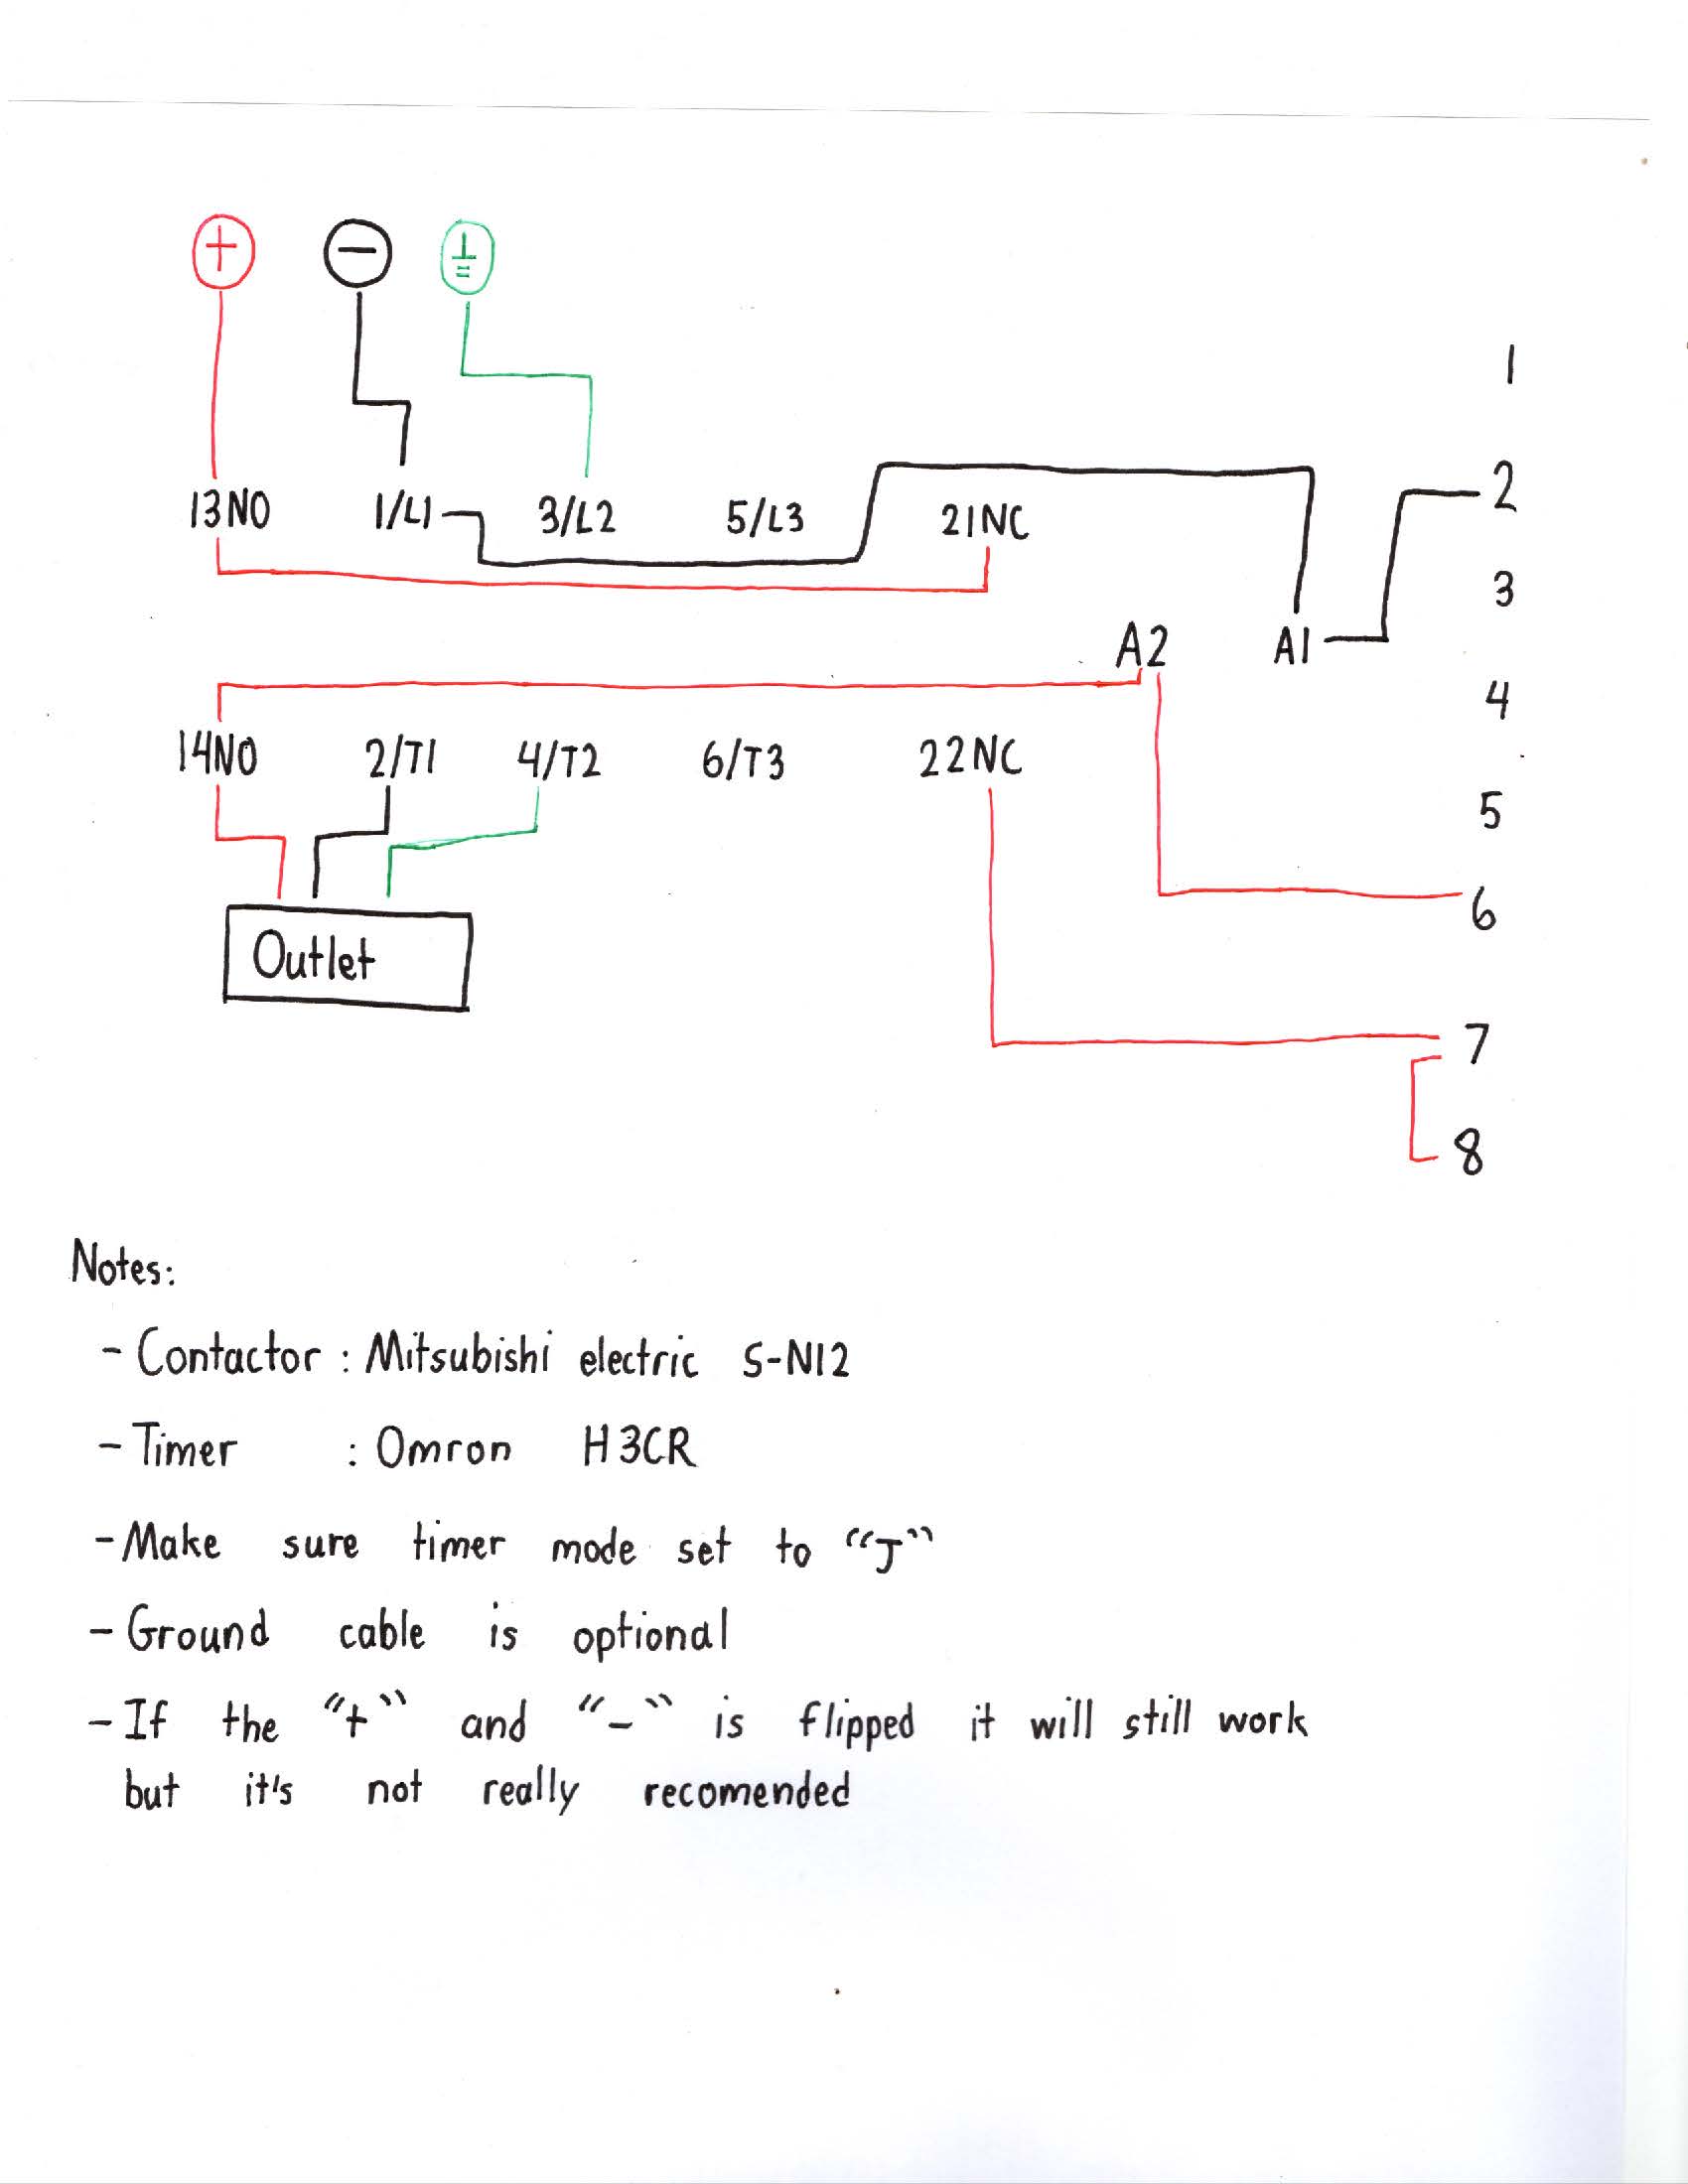 + −
1
13NO 1/L1 3/L2 5/L3 21NC
2
3
A2 A1
4
14NO 2/T1 4/T2 6/T3 22NC
5
6
Outlet
7
8
Notes:
- Contactor : Mitsubishi electric S-N12
- Timer : Omron H3CR
- Make sure timer mode set to "J"
- Ground cable is optional
- If the "+" and "-" is flipped it will still work
but it's not really recomended